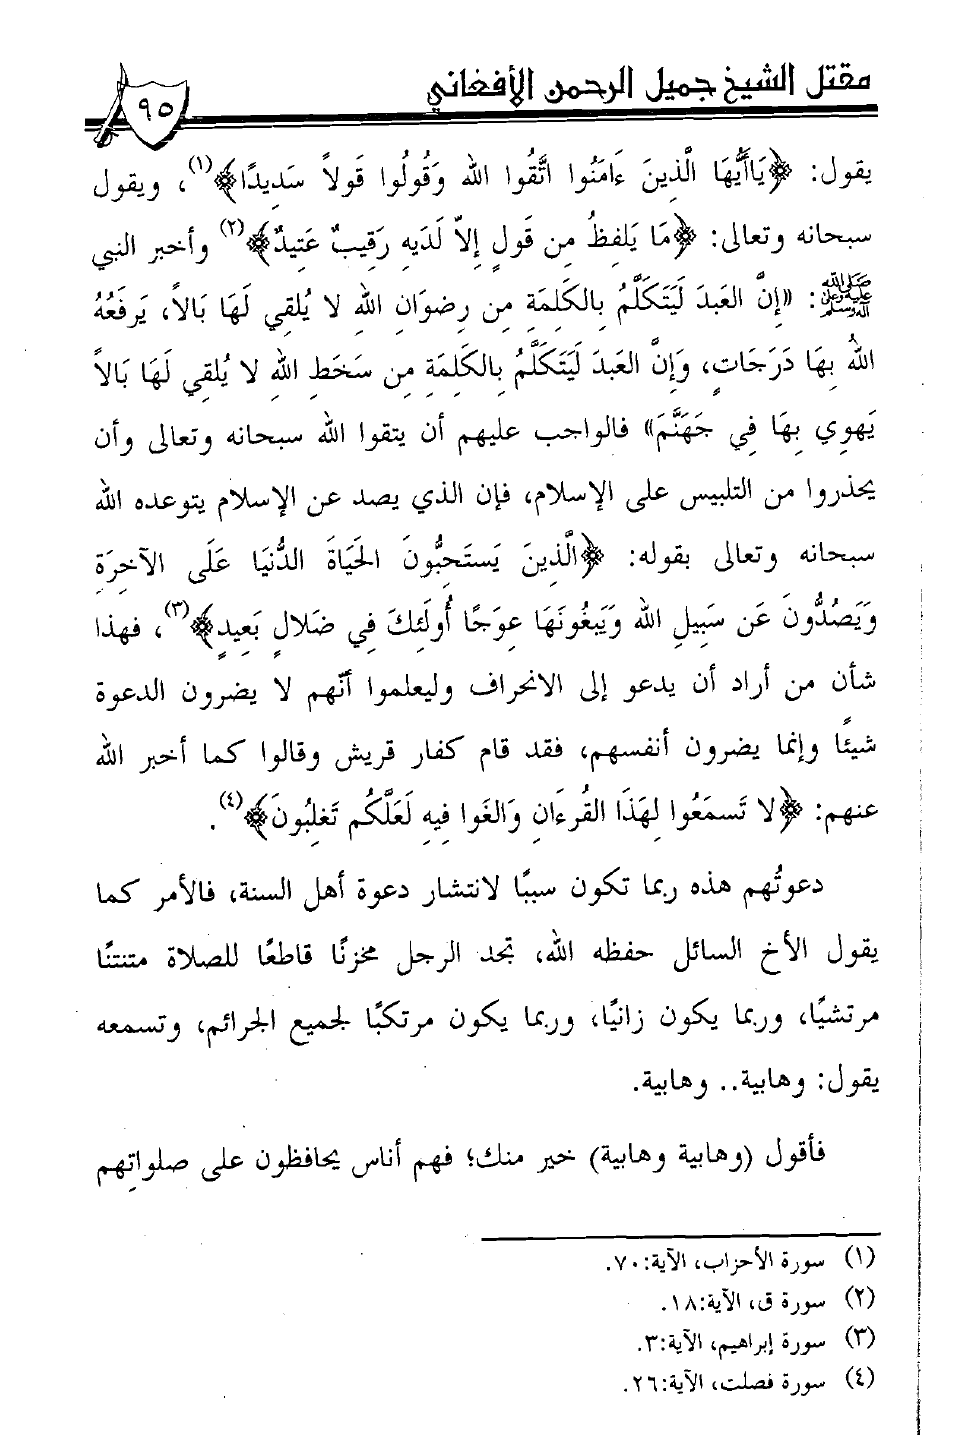 مقتل الشيخ جميل الرحمن الأفغاني
٩٥
يقول: ﴿يَاأَيُّهَا الَّذِينَ ءَامَنُوا اتَّقُوا اللهَ وَقُولُوا قَولاً سَدِيدًا﴾(١)، ويقول
سبحانه وتعالى: ﴿مَا يَلفِظُ مِن قَولٍ إِلاّ لَدَيهِ رَقِيبٌ عَتِيدٌ﴾(٢) وأخبر النبي
ﷺ: «إِنَّ العَبدَ لَيَتَكَلَّمُ بِالكَلِمَةِ مِن رِضوَانِ اللهِ لا يُلقِي لَهَا بَالاً، يَرفَعُهُ
اللهُ بِهَا دَرَجَاتٍ، وَإِنَّ العَبدَ لَيَتَكَلَّمُ بِالكَلِمَةِ مِن سَخَطِ اللهِ لا يُلقِي لَهَا بَالاً
يَهوِي بِهَا فِي جَهَنَّمَ» فالواجب عليهم أن يتقوا الله سبحانه وتعالى وأن
يحذروا من التلبيس على الإسلام، فإن الذي يصد عن الإسلام يتوعده الله
سبحانه وتعالى بقوله: ﴿الَّذِينَ يَستَحِبُّونَ الحَيَاةَ الدُّنيَا عَلَى الآخِرَةِ
وَيَصُدُّونَ عَن سَبِيلِ اللهِ وَيَبغُونَهَا عِوَجًا أُولَئِكَ فِي ضَلالٍ بَعِيدٍ﴾(٣)، فهذا
شأن من أراد أن يدعو إلى الانحراف وليعلموا أنّهم لا يضرون الدعوة
شيئًا وإنما يضرون أنفسهم، فقد قام كفار قريش وقالوا كما أخبر الله
عنهم: ﴿لا تَسمَعُوا لِهَذَا القُرءَانِ وَالغَوا فِيهِ لَعَلَّكُم تَغلِبُونَ﴾(٤).
دعوتُهم هذه ربما تكون سببًا لانتشار دعوة أهل السنة، فالأمر كما
يقول الأخ السائل حفظه الله، تجد الرجل مخزنًا قاطعًا للصلاة متنتنًا
مرتشيًا، وربما يكون زانيًا، وربما يكون مرتكبًا لجميع الجرائم، وتسمعه
يقول: وهابية.. وهابية.
فأقول (وهابية وهابية) خير منك؛ فهم أناس يحافظون على صلواتِهم
(١) سورة الأحزاب، الآية:٧٠.
(٢) سورة ق، الآية:١٨.
(٣) سورة إبراهيم، الآية:٣.
(٤) سورة فصلت، الآية:٢٦.